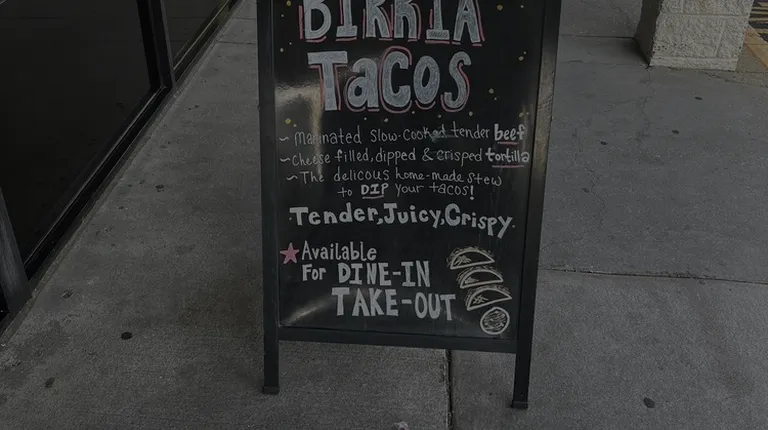 BIRRIA
TACOS
~ Marinated slow-cooked tender beef
~ Cheese filled, dipped & crisped tortilla
~ The delicous home-made stew
to DIP your tacos!
Tender, Juicy, Crispy
Available
For DINE-IN
TAKE-OUT